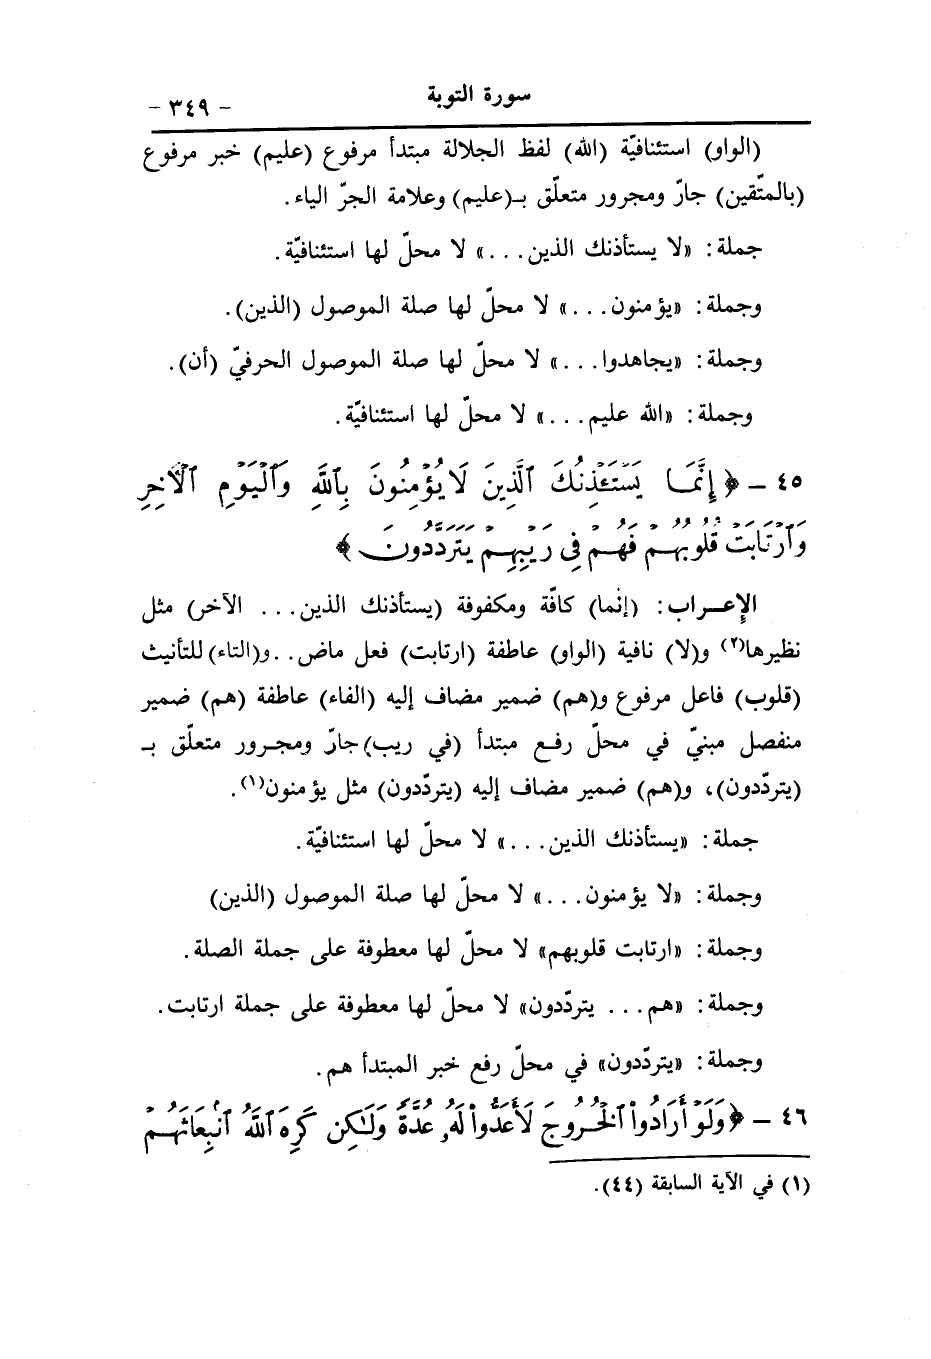 سورة التوبة
- ٣٤٩ -
(الواو) استئنافيّة (الله) لفظ الجلالة مبتدأ مرفوع (عليم) خبر مرفوع
(بالمتّقين) جارّ ومجرور متعلّق بـ(عليم) وعلامة الجرّ الياء.
جملة: «لا يستأذنك الذين...» لا محلّ لها استئنافيّة.
وجملة: «يؤمنون...» لا محلّ لها صلة الموصول (الذين).
وجملة: «يجاهدوا...» لا محلّ لها صلة الموصول الحرفيّ (أن).
وجملة: «الله عليم...» لا محلّ لها استئنافيّة.
٤٥ - ﴿إِنَّمَا يَسْتَـْٔذِنُكَ ٱلَّذِينَ لَا يُؤْمِنُونَ بِٱللَّهِ وَٱلْيَوْمِ ٱلْأٓخِرِ
وَٱرْتَابَتْ قُلُوبُهُمْ فَهُمْ فِى رَيْبِهِمْ يَتَرَدَّدُونَ﴾
الإعراب: (إنّما) كافّة ومكفوفة (يستأذنك الذين... الآخر) مثل
نظيرها(٢) و(لا) نافية (الواو) عاطفة (ارتابت) فعل ماض.. و(التاء) للتأنيث
(قلوب) فاعل مرفوع و(هم) ضمير مضاف إليه (الفاء) عاطفة (هم) ضمير
منفصل مبنيّ في محلّ رفع مبتدأ (في ريب) جارّ ومجرور متعلّق بـ
(يتردّدون)، و(هم) ضمير مضاف إليه (يتردّدون) مثل يؤمنون(١).
جملة: «يستأذنك الذين...» لا محلّ لها استئنافيّة.
وجملة: «لا يؤمنون...» لا محلّ لها صلة الموصول (الذين)
وجملة: «ارتابت قلوبهم» لا محلّ لها معطوفة على جملة الصلة.
وجملة: «هم... يتردّدون» لا محلّ لها معطوفة على جملة ارتابت.
وجملة: «يتردّدون» في محلّ رفع خبر المبتدأ هم.
٤٦ - ﴿وَلَوْ أَرَادُوا۟ ٱلْخُرُوجَ لَأَعَدُّوا۟ لَهُۥ عُدَّةً وَلَـٰكِن كَرِهَ ٱللَّهُ ٱنۢبِعَاثَهُمْ
(١) في الآية السابقة (٤٤).